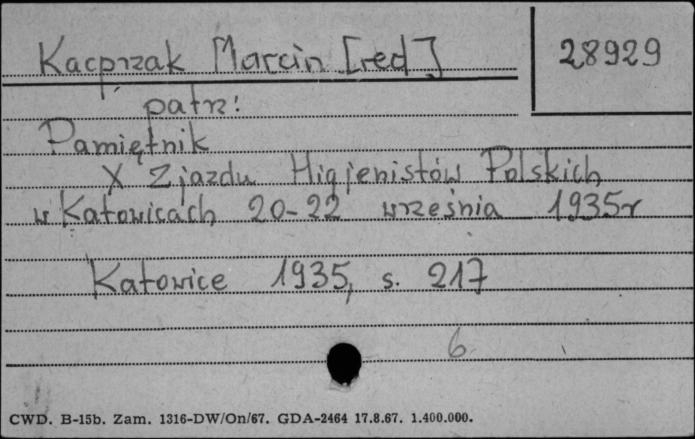 Kacprzak Marcin [red]
28929
patrz:
Pamiętnik
X Zjazdu Higjenistów Polskich
w Katowicach 20-22 września 1935r
Katowice 1935, s. 217
6
CWD. B-15b. Zam. 1316-DW/On/67. GDA-2464 17.8.67. 1.400.000.